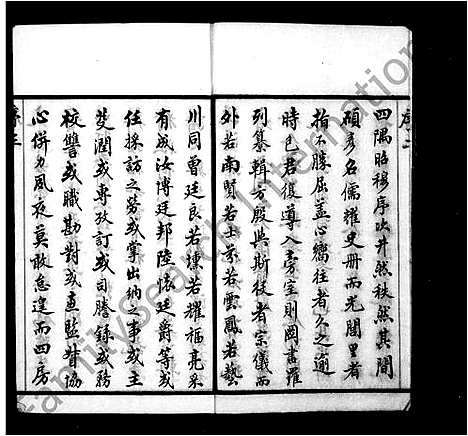 四隅昭穆序次井然秩然其間
碩彥名儒耀史冊而光閭里者
指不勝屈益心嚮往者久之適
時巳君復導入旁室則圖書羅
列纂輯方殷與斯役者宗儀而
外若南賢若士芬若雲鳳若藝
川同曾廷良若懷若耀福亮采
有成汝博廷邦陸懷廷爵等或
任採訪之勞或掌出納之事或主
筆潤或專攷訂或司謄錄或務
校讐或職勘對或直監督協
心併力夙夜莫敢怠遑而四房